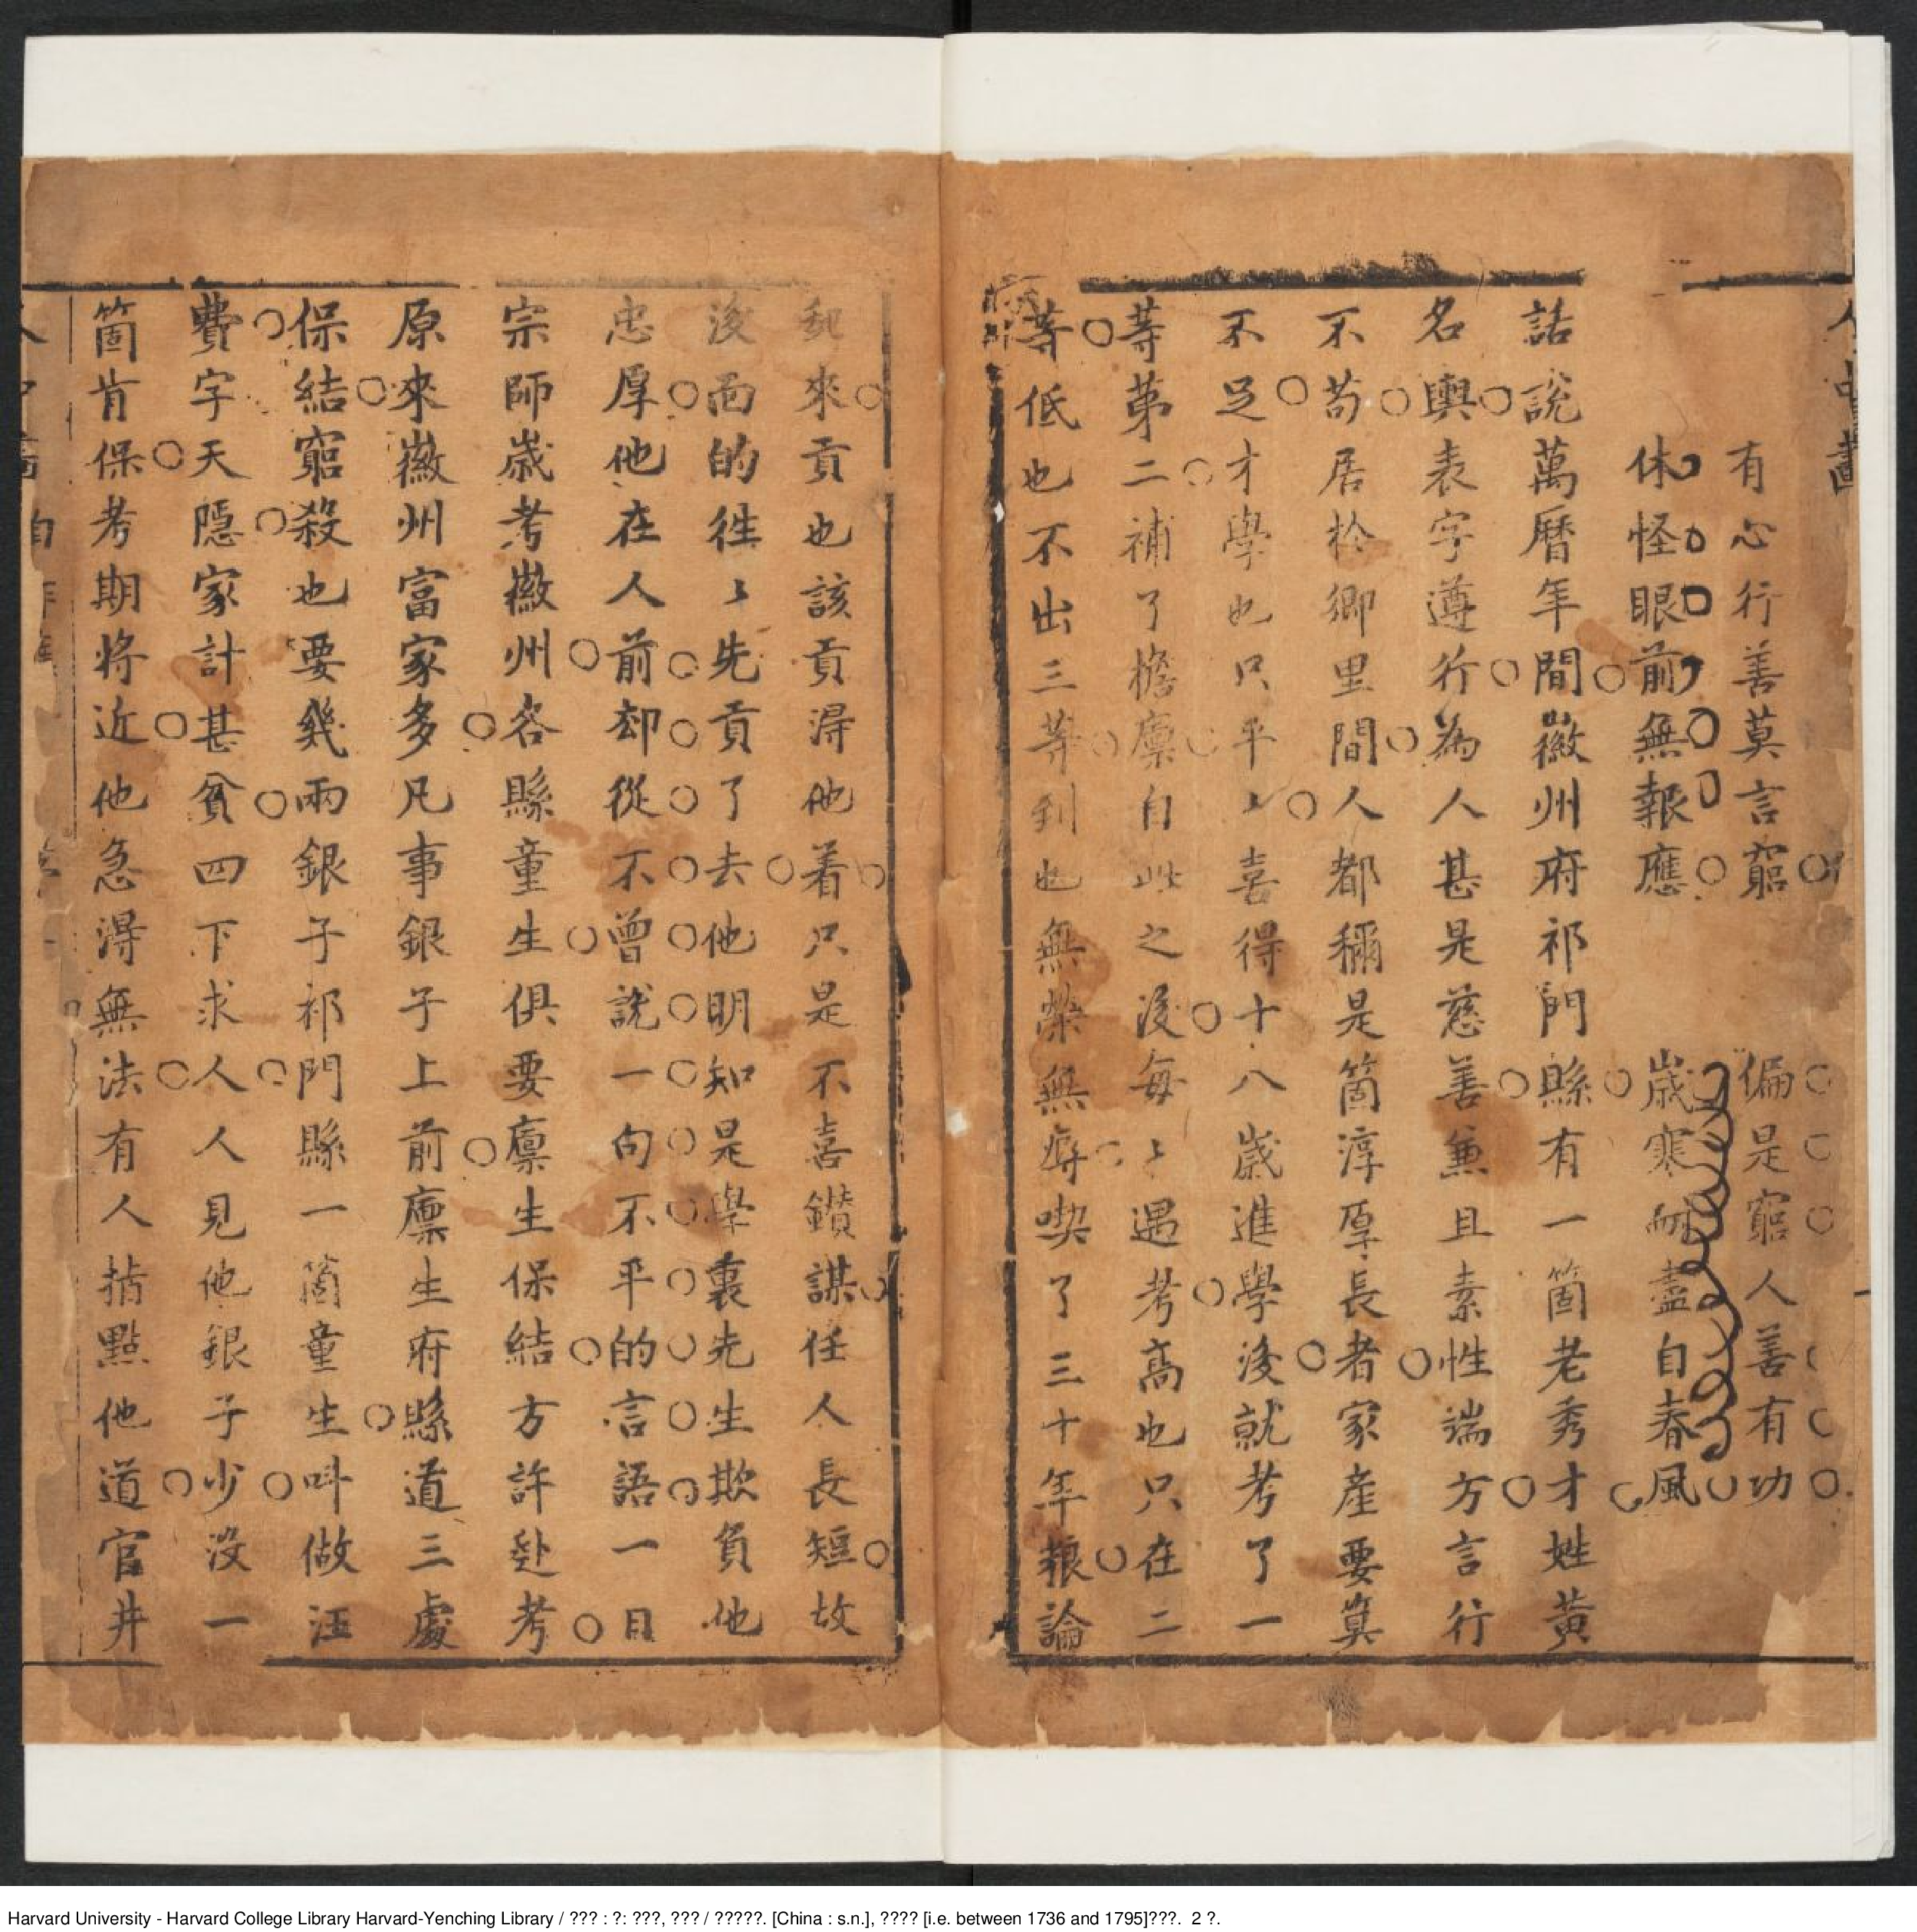 有心行善莫言窮　偏是窮人善有功
休怪眼前無報應　歲寒耐盡自春風
話說萬曆年間徽州府祁門縣有一箇老秀才姓黃
名輿表字遵行為人甚是慈善兼且素性端方言行
不苟居於鄉里間人都稱是箇淳厚長者家產要算
不足才學也只平〻喜得十八歲進學後就考了一
等第二補了簷廩自此之後每〻遇考高也只在二
等低也不出三等到也無榮無辱喫了三十年糧論
來貢也該貢淂他着只是不喜鑽謀任人長短故
後面的徃〻先貢了去他明知是學裏先生欺負他
忠厚他在人前却從不曾說一句不平的言語一日
宗師歲考徽州各縣童生俱要廩生保結方許赴考
原來徽州富家多凡事銀子上前廩生府縣道三處
保結窮殺也要幾兩銀子祁門縣一箇童生叫做汪
費字天隱家計甚貧四下求人人見他銀子少沒一
箇肯保考期將近他急淂無法有人指點他道官井
Harvard University - Harvard College Library Harvard-Yenching Library / ??? : ?: ???, ??? / ?????. [China : s.n.], ???? [i.e. between 1736 and 1795]???. 2 ?.